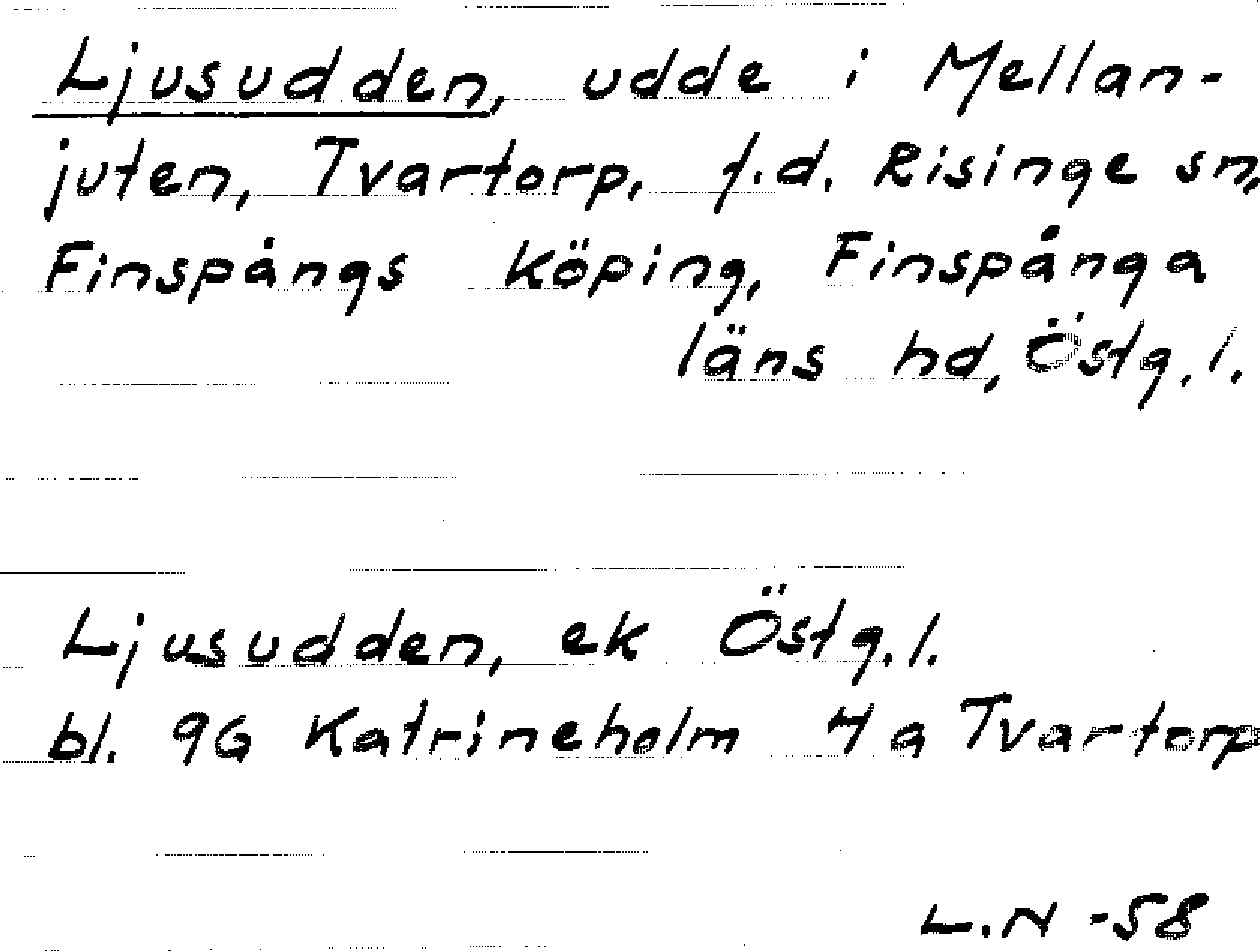 Ljusudden, udde i Mellan-
juten, Tvartorp, f.d. Risinge sn,
Finspångs köping, Finspånga
läns hd, Östg.l.
Ljusudden, ek Östg.l.
bl. 9G Katrineholm 4a Tvartorp
L.N -58